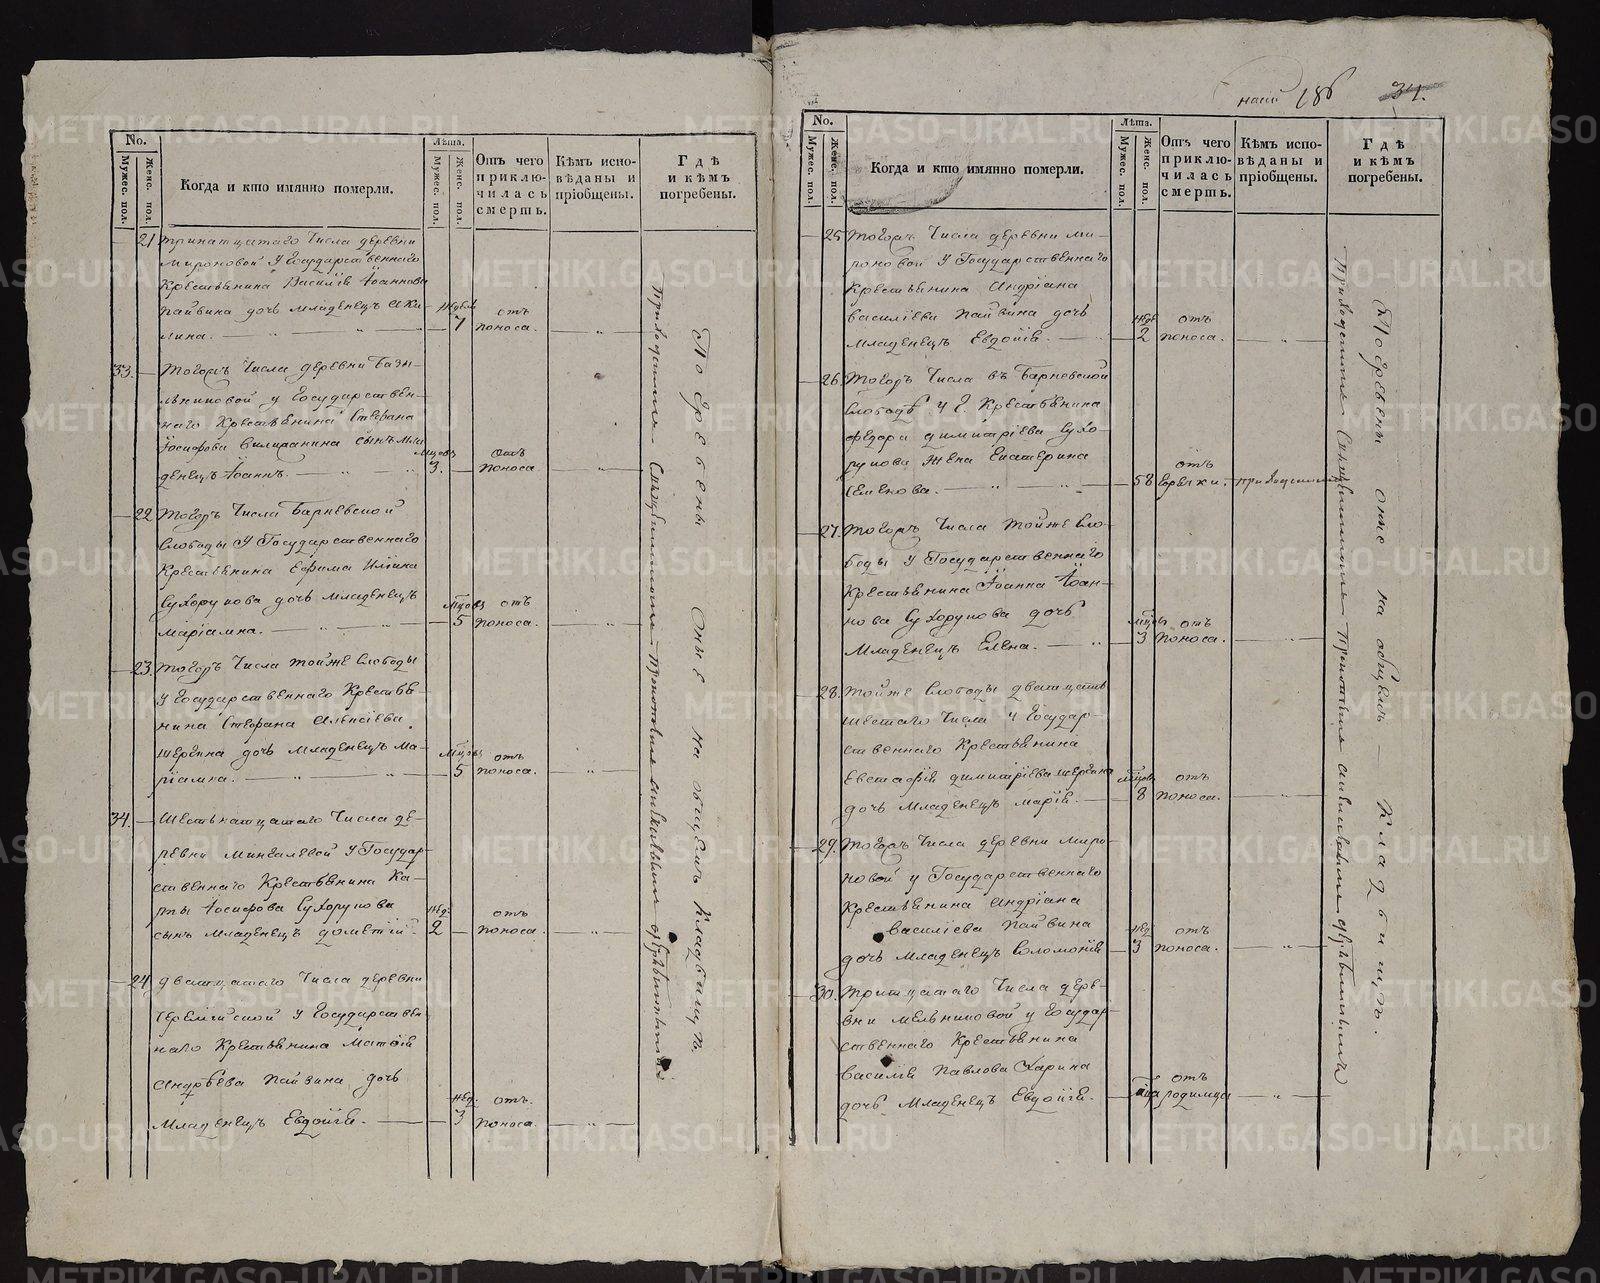 No.
Мужес. пол.
Женс. пол.
Когда и кто имянно померли.
Лѣта.
Мужес. пол.
Женс. пол.
Отъ чего приклю-
чилась смерть.
Кѣмъ испо-
вѣданы и
пріобщены.
Гдѣ
и кѣмъ
погребены.
21 тринатцатаго Числа деревни
Мироновой У Государственнаго
Крестьянина Василія Іоаннова
Пайвина дочь младенецъ Аки-
лина.
недель 7 отъ поноса.
33. Тогожъ Числа деревни
у Государствен-
наго Крестьянина Стефана
Іосифова сынъ мла
денецъ Іоаннъ.
мцовъ 3. отъ поноса
22 Тогожъ Числа Барневской
Слободы У Государственнаго
Крестьянина Ефима Иліина
Сухорукова дочь младенецъ
Маріамна.
мцовъ 5 отъ поноса.
23. Тогожъ Числа тойже Слободы
У Государственнаго Крестья-
нина Стефана Алексіева
дочь младенецъ Ма-
ріамна.
мцовъ 5 отъ поноса.
34. Шестьнатцатаго Числа де-
ревни Мингалевой У Государ-
ственнаго Крестьянина Ка-
рпы Іосифова Сухорукова
сынъ младенецъ Дометій
нед: 2 отъ поноса.
24 двадцатаго Числа деревни
У Государствен
наго Крестьянина Матфія
Андрѣева Пайвина дочь
Младенецъ Евдокія.
нед: 3 отъ. поноса.
Погребены оные на общемъ кладбищѣ.
Приходскимъ Священникомъ
наш 186 34.
No.
Мужес. пол.
Женс. пол.
Когда и кто имянно померли.
Лѣта.
Мужес. пол.
Женс. пол.
Отъ чего
приклю-
чилась
смерть.
Кѣмъ испо-
вѣданы и
пріобщены.
Гдѣ
и кѣмъ
погребены.
25 Тогожъ Числа деревни Ми-
роновой У Государственнаго
Крестьянина Андріана
Василіева Пайвина дочь
младенецъ Евдокія.
нед: 2 отъ поноса.
26. Тогожъ Числа въ Барневской
Слободѣ У Г. Крестьянина
Федора Димитріева Сухо-
рукова Жена Екатерина
Семенова.
58 отъ горячки. приходскимъ
27. Тогожъ Числа тойже Сло-
боды У Государственнаго
Крестьянина Іоанна Іоан-
нова Сухорукова дочь
Младенецъ Елена.
мцовъ 3 отъ поноса.
28. тойже Слободы двадцать
шестаго Числа У Государ-
ственнаго Крестьянина
Евстафія Димитріева
дочь Младенецъ Марія.
мцовъ 8 отъ поноса.
29. Тогожъ Числа деревни Миро-
новой У Государственнаго
Крестьянина Андріана
Василіева Пайвина
дочь младенецъ Соломонія
нед 3 отъ поноса.
30. Тритцатаго Числа дере-
вни Мельниковой у Государ-
ственнаго Крестьянина
Василія Павлова Харина
дочь Младенецъ Евдокія.
отъ родимца
Погребены оные на общемъ Кладбищѣ.
Приходскимъ Священникомъ
METRIKI.GASO-URAL.RU